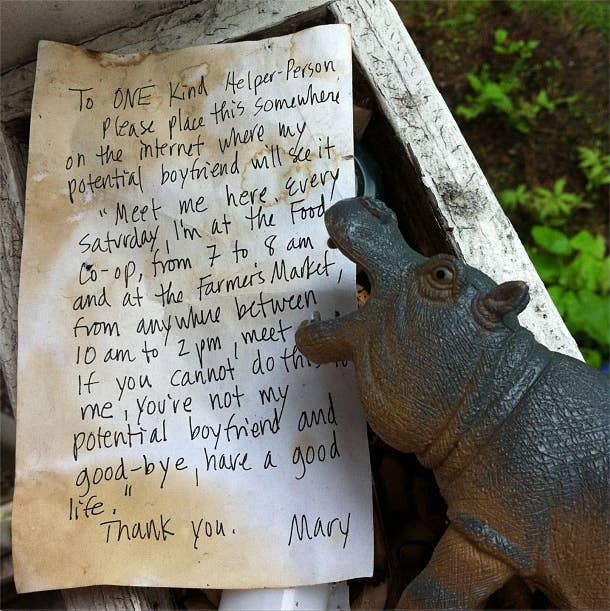 To ONE Kind Helper-Person
Please place this somewhere
on the internet where my
potential boyfriend will see it
"Meet me here. Every
Saturday, I'm at the Food
Co-op, from 7 to 8 am
and at the Farmer's Market,
from anywhere between
10 am to 2 pm, meet
If you cannot do this to
me, you're not my
potential boyfriend and
good-bye, have a good
life."
Thank you. Mary